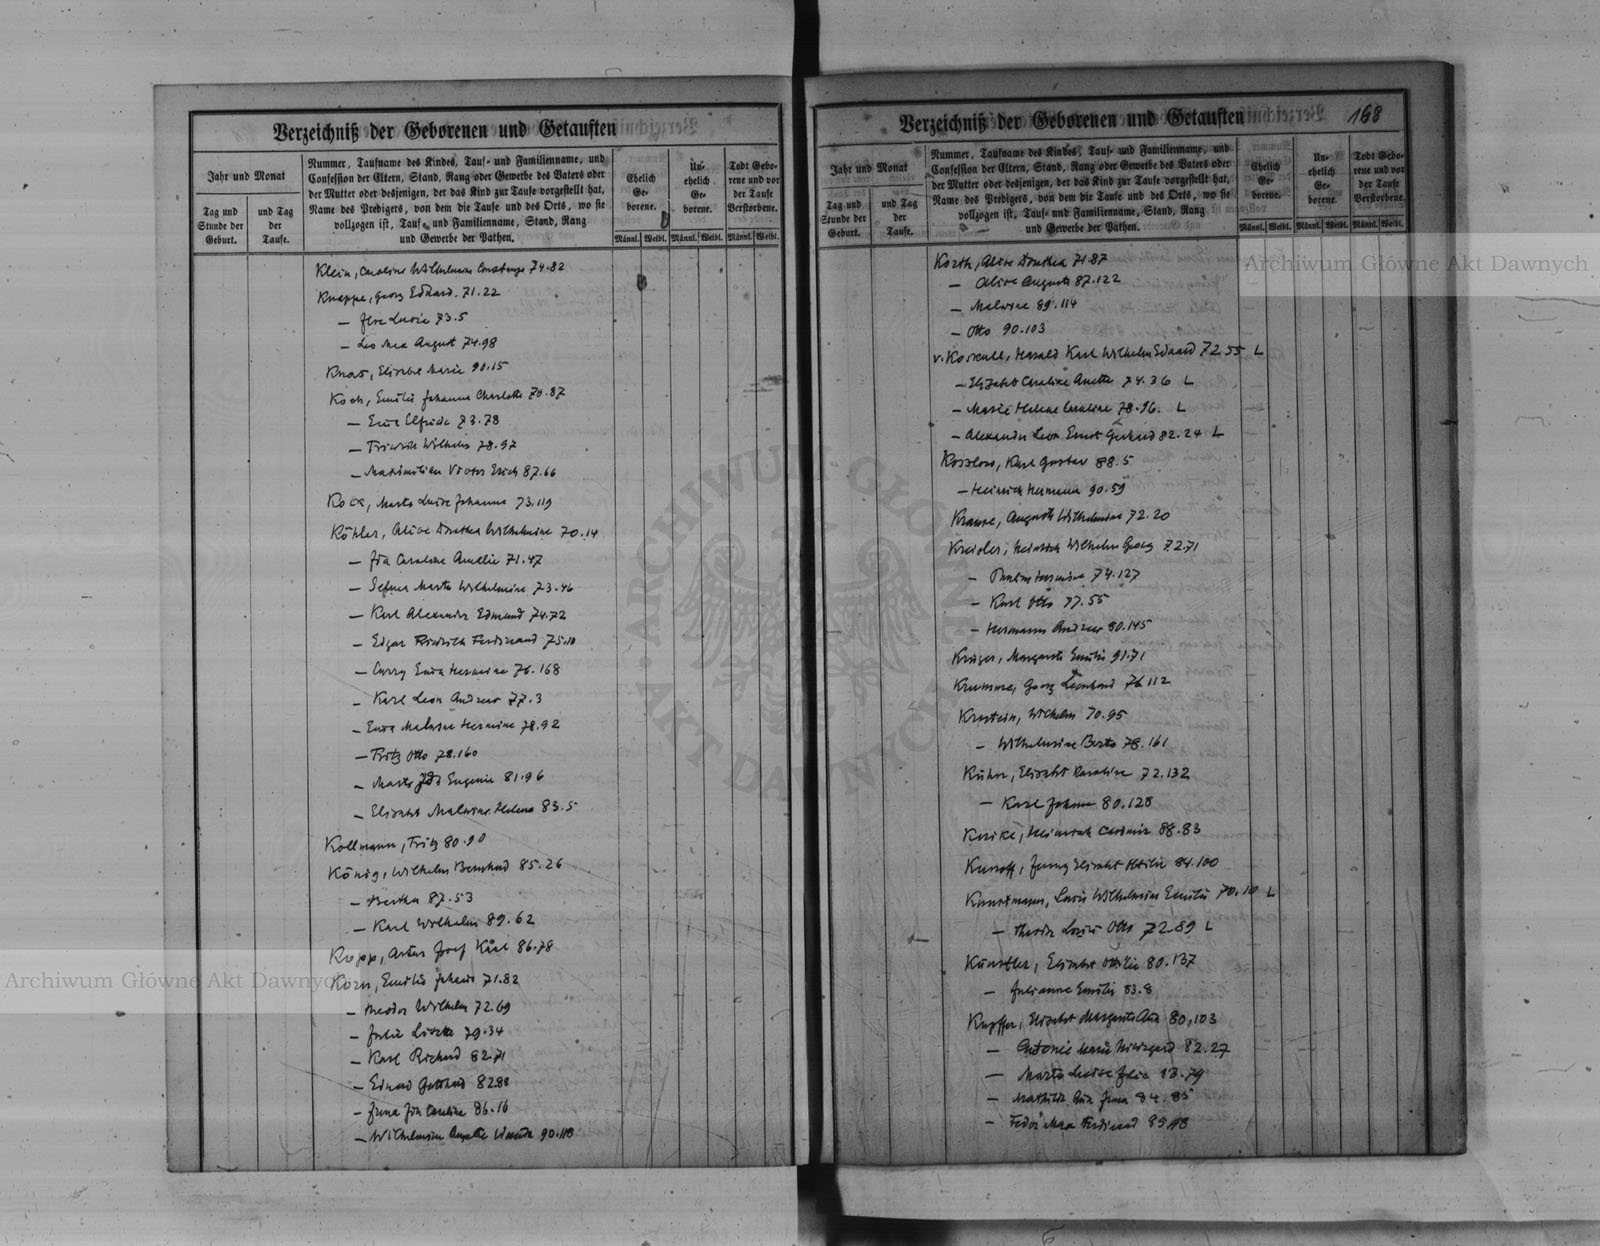 Verzeichniß der Geborenen und Getauften
Jahr und Monat
Tag und Stunde der Geburt.
und Tag der Taufe.
Nummer, Taufname des Kindes, Tauf- und Familienname, und
Confession der Eltern, Stand, Rang oder Gewerbe des Vaters oder
der Mutter oder desjenigen, der das Kind zur Taufe vorgestellt hat,
Name des Predigers, von dem die Taufe und des Orts, wo sie
vollzogen ist, Tauf- und Familienname, Stand, Rang
und Gewerbe der Pathen.
Ehelich Geborene.
Unehelich Geborene.
Todt Geborene und vor der Taufe Verstorbene.
Männl. Weibl. Männl. Weibl. Männl. Weibl.
Klein, Caroline Wilhelmine Constanze 74.82
Knappe, Georg Eduard. 71.22
— Luise 73.5
— Leo Max August 74.98
Knas, Elisabet Marie 90.15
Koch, Emilie Johanna Charlotte 70.87
— Elfride 73.78
— Friedrich Wilhelm 78.97
— Maximilian Victor Erich 87.66
Martha Luise Johanna 73.119
Köhler, Alice Dorothea Wilhelmine 70.14
— Ida Caroline Amelie 71.47
— Selma Marta Wilhelmine 73.46
— Karl Alexander Edmund 74.72
— Edgar Friedrich Ferdinand 75.10
— Hermine 76.168
— Karl Leon Andreas 77.3
— Malwine Hermine 78.92
— Fritz Otto 78.160
— Marta Eugenie 81.96
— Elisabet Malwine Helene 83.5
Kollmann, Fritz 80.90
König, Wilhelm Bernhard 85.26
— Bertha 87.53
— Karl Wilhelm 89.62
Kopp, Artur Josef Karl 86.78
Korn, Emilie Johanna 71.82
— Theodor Wilhelm 72.69
— Julie 79.34
— Karl Richard 82.71
— Eduard Gotthard 82.88
— Ida Caroline 86.16
— Wilhelmine Amalie Wanda 90.118
Verzeichniß der Geborenen und Getauften
168
Jahr und Monat
Tag und Stunde der Geburt.
und Tag der Taufe.
Nummer, Taufname des Kindes, Tauf- und Familienname, und
Confession der Eltern, Stand, Rang oder Gewerbe des Vaters oder
der Mutter oder desjenigen, der das Kind zur Taufe vorgestellt hat,
Name des Predigers, von dem die Taufe und des Orts, wo sie
vollzogen ist, Tauf- und Familienname, Stand, Rang
und Gewerbe der Pathen.
Ehelich Geborene.
Unehelich Geborene.
Todt Geborene und vor der Taufe Verstorbene.
Männl. Weibl. Männl. Weibl. Männl. Weibl.
Korth, Alice Dorothea 71.87
— Alice Auguste 87.122
— Malwine 89.114
— Otto 90.103
v. Koskull, Harald Karl Wilhelm Eduard 72.55 L
— Elisabet Caroline Anette 74.36 L
— Marie Helene Caroline 78.96. L
— Alexander Leon Ernst Gerhard 82.24 L
Karl Gustav 88.5
— Heinrich Hermann 90.59
Krause, Auguste Wilhelmine 72.20
Kreisler, Heinrich Wilhelm Georg 72.71
— Hermine 74.127
— Karl Otto 77.55
— Hermann Andreas 80.145
Krüger, Margarete Emilie 91.71
Krumme, Georg Leonhard 76.112
Krustein, Wilhelm 70.95
— Wilhelmine Berta 78.161
Kühn, Elisabet Karoline 72.132
— Karl Johann 80.128
Kurike, Heinrich Casimir 88.83
Kunoff, Jenny Elisabet Ottilie 84.100
Kunstmann, Luise Wilhelmine Emilie 70.10 L
— Otto 72.59 L
Künstler, Elisabet Ottilie 80.137
— Julianne Emilie 83.8
Kupffer, Elisabet Margarete Ada 80,103
— Antonie Marie Hildegard 82.27
— Marta Luise 83.79
— Mathilde 84.85
— Fedor Max Ferdinand 85.18
Archiwum Główne Akt Dawnych
Archiwum Główne Akt Dawnych
ARCHIWUM GŁÓWNE AKT DAWNYCH